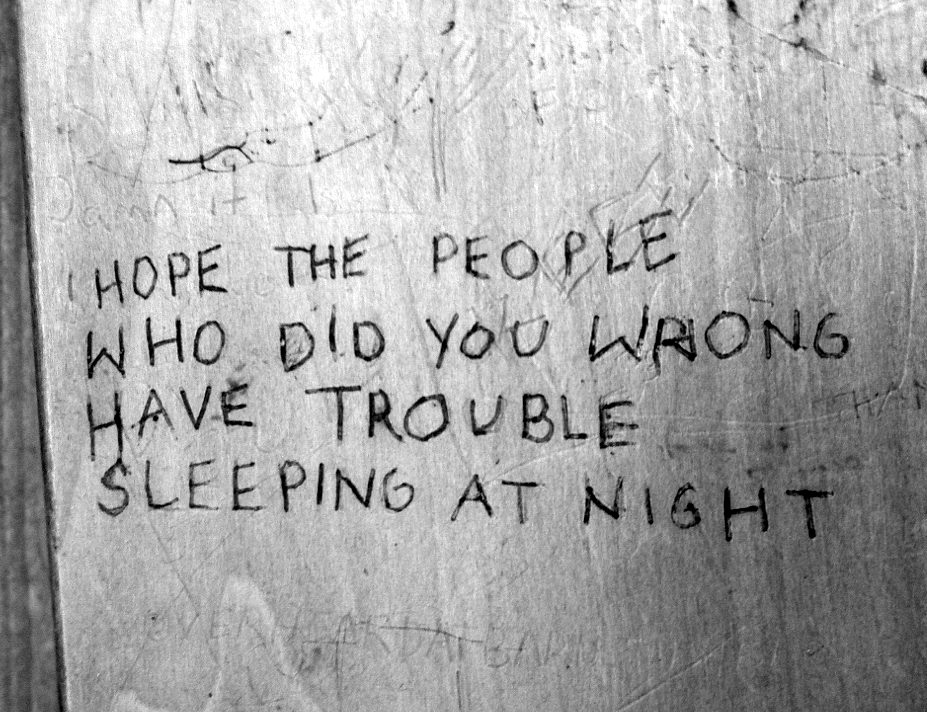 Damn it
I HOPE THE PEOPLE
WHO DID YOU WRONG
HAVE TROUBLE
SLEEPING AT NIGHT